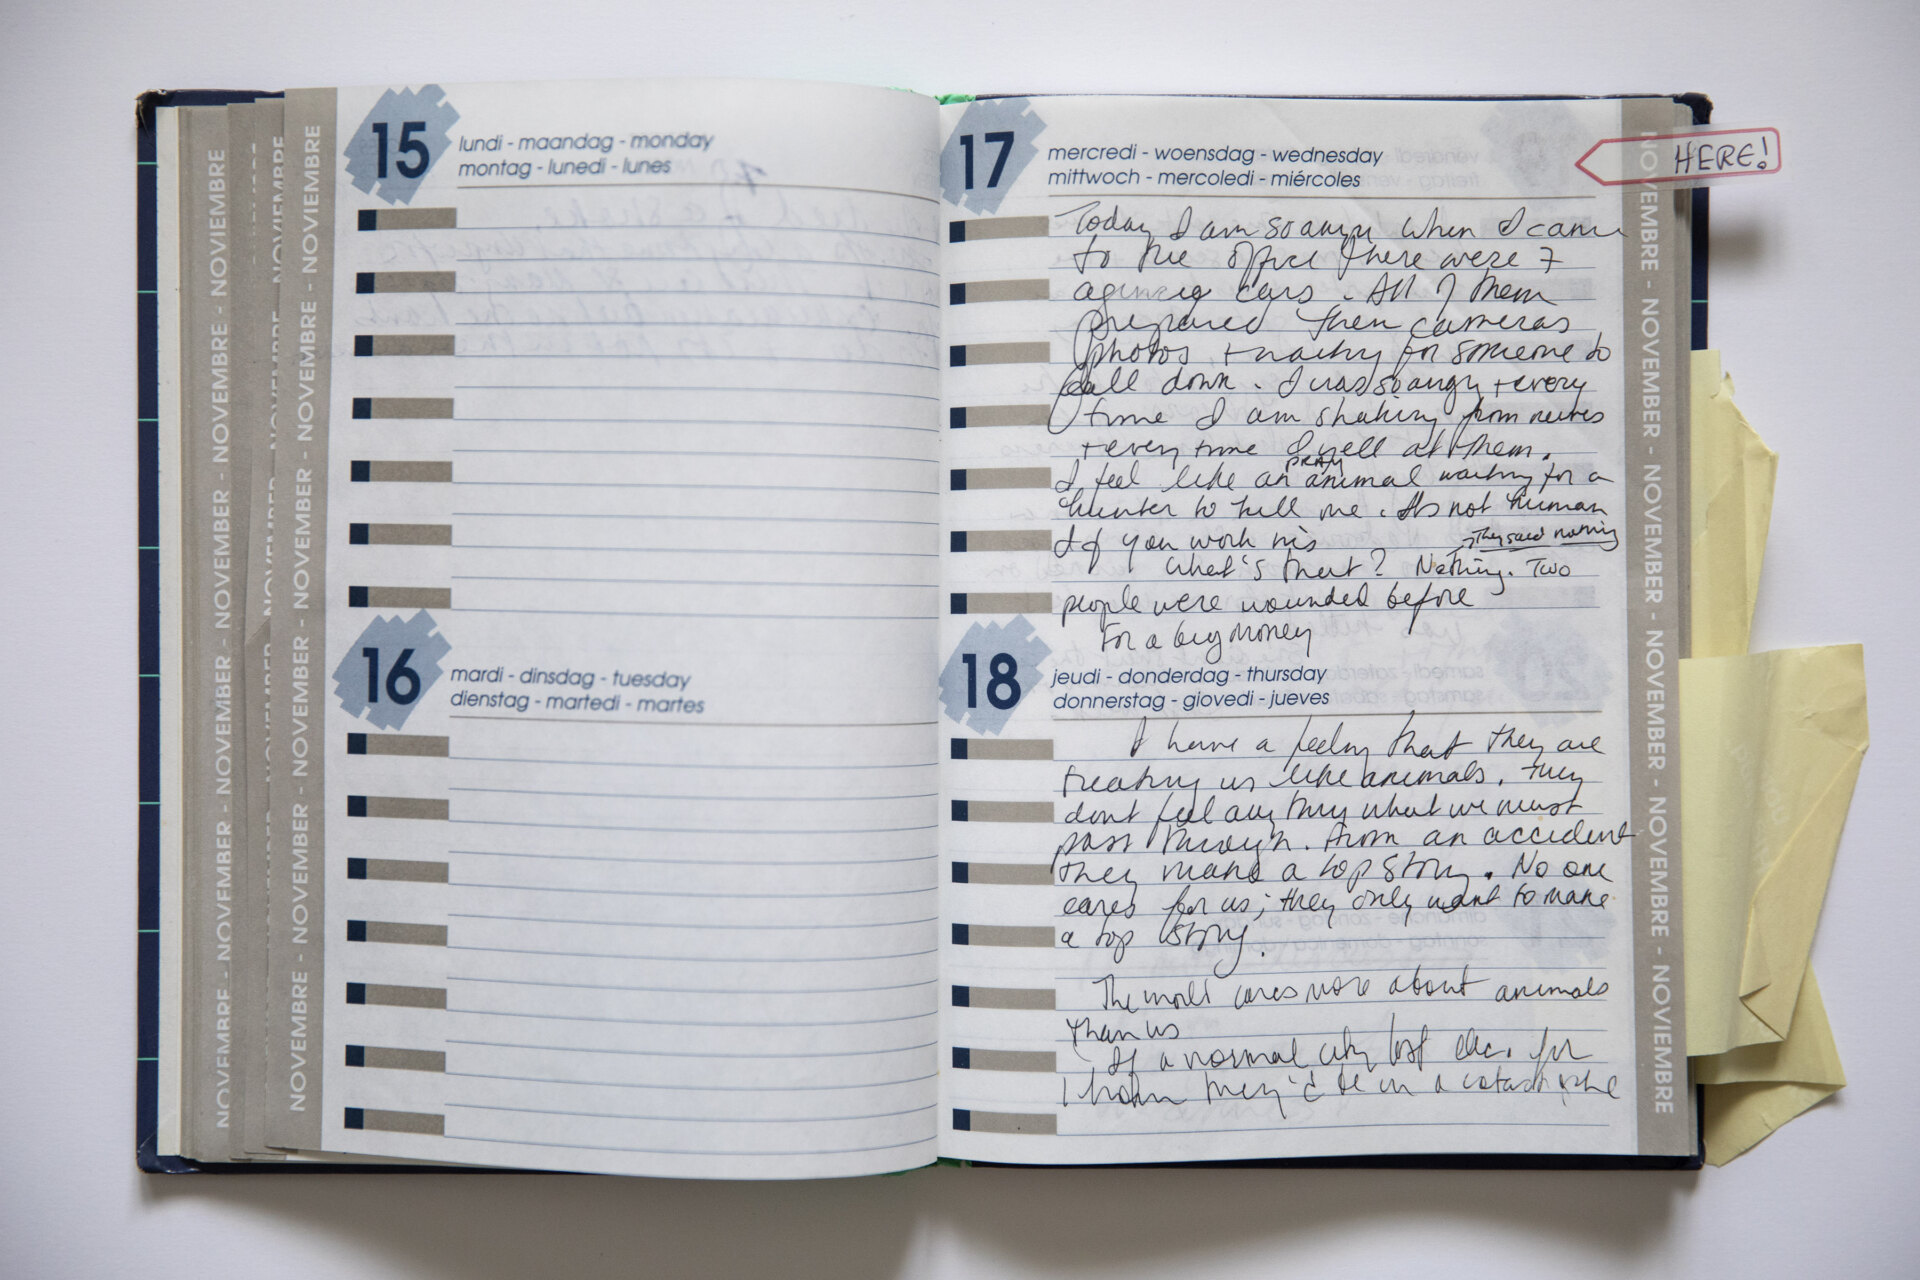 NOVEMBRE - NOVEMBER - NOVEMBER - NOVIEMBRE
NOVIEMBRE
NOVEMBRE - NOVEMBER - NOVEMBER - NOVIEMBRE
15
lundi - maandag - monday
montag - lunedi - lunes
16
mardi - dinsdag - tuesday
dienstag - martedi - martes
17
mercredi - woensdag - wednesday
mittwoch - mercoledi - miércoles
HERE!
Today I am so angry when I came
to the office there were 7
agency cars. All of them
prepared their cameras
photos, + waiting for someone to
fall down. I was so angry + every
time I am shaking from nerves
+ every time I yell at them.
PRAY
I feel like an animal waiting for a
hunter to kill me. It's not human
If you work this
They said nothing
What's that? Nothing. Two
people were wounded before
For a big money
18
jeudi - donderdag - thursday
donnerstag - giovedi - jueves
I have a feeling that they are
treating us like animals. They
dont feel any thing what we must
pass through. From an accident
they make a top story. No one
cares for us; they only want to make
a top story.
The world cares more about animals
than us
If a normal city lost elec. for
1 hour they'd be in a catastrophe
NOVEMBRE - NOVEMBER - NOVEMBER - NOVIEMBRE